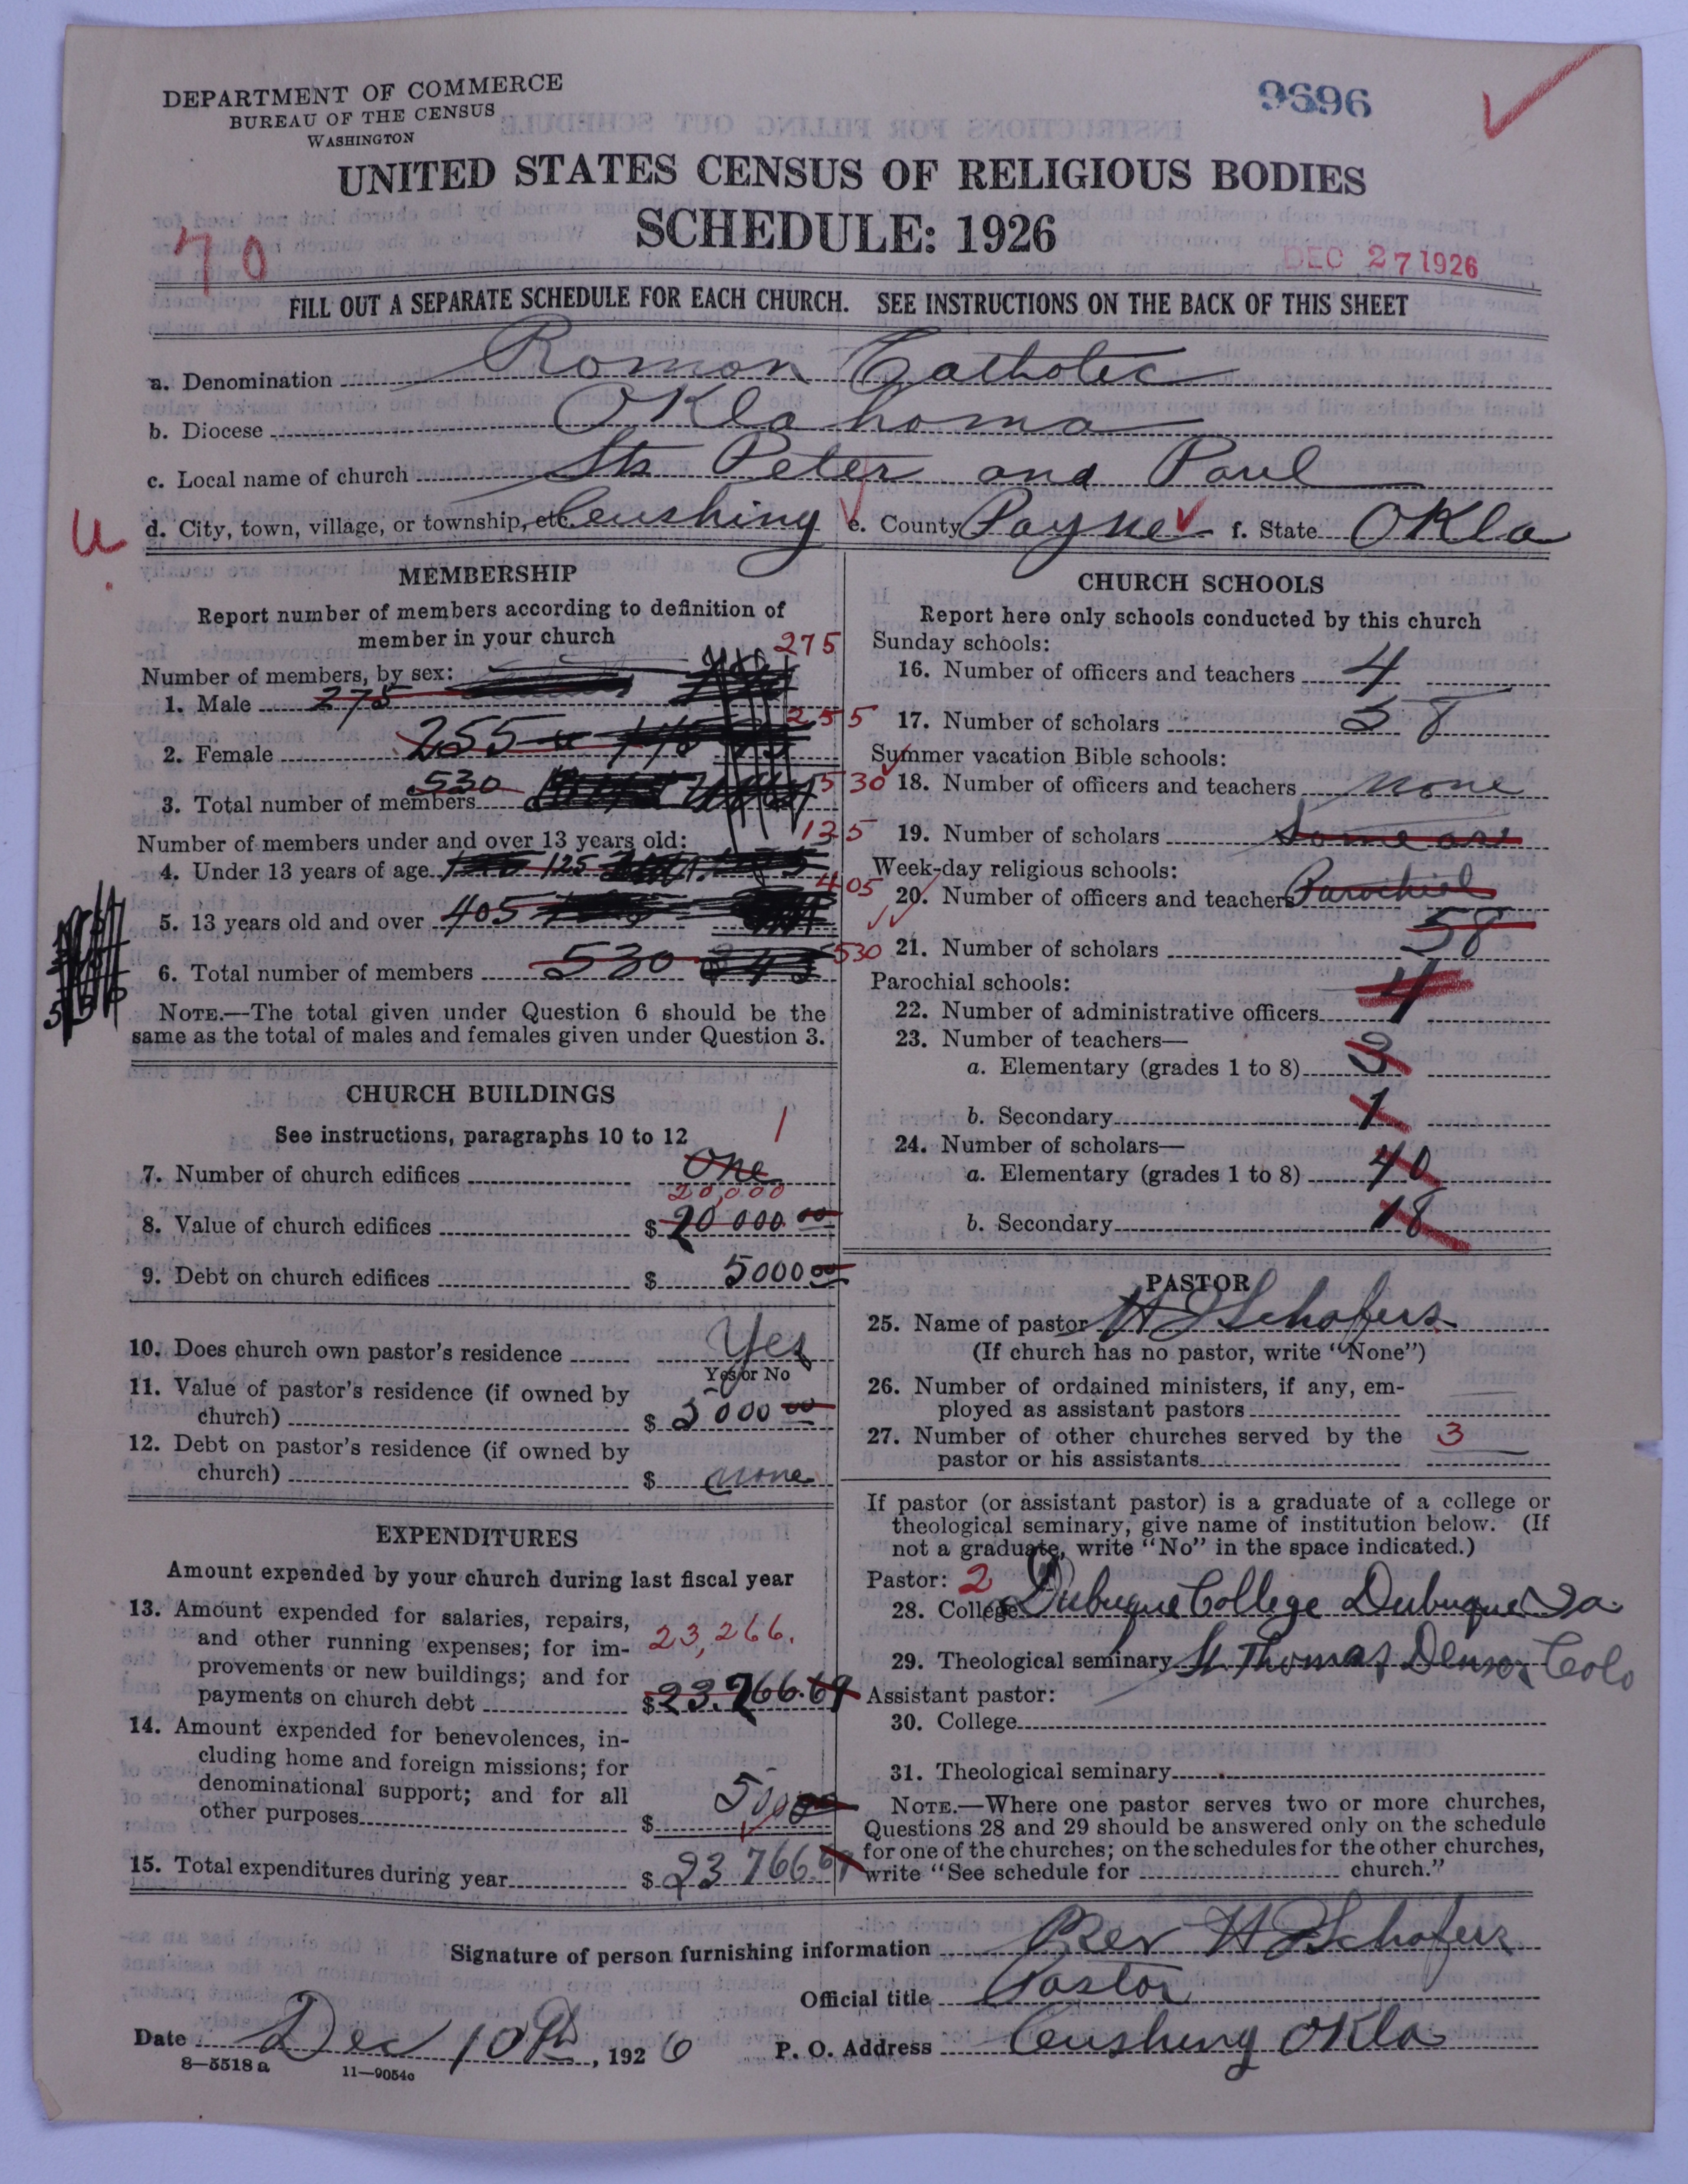 DEPARTMENT OF COMMERCE
BUREAU OF THE CENSUS
WASHINGTON
9696
UNITED STATES CENSUS OF RELIGIOUS BODIES
SCHEDULE: 1926
70
DEC 27 1926
FILL OUT A SEPARATE SCHEDULE FOR EACH CHURCH. SEE INSTRUCTIONS ON THE BACK OF THIS SHEET
a. Denomination Roman Catholic
b. Diocese Oklahoma
c. Local name of church Sts Peter and Paul
d. City, town, village, or township, etc. Cushing e. County Payne f. State Okla
MEMBERSHIP
Report number of members according to definition of
member in your church
275
Number of members, by sex:
1. Male 275
255
2. Female 255
530
530
3. Total number of members
Number of members under and over 13 years old:
4. Under 13 years of age 125
405
5. 13 years old and over 405
6. Total number of members 530
530
NOTE.—The total given under Question 6 should be the
same as the total of males and females given under Question 3.
CHURCH BUILDINGS
See instructions, paragraphs 10 to 12
1
7. Number of church edifices One
20,000
8. Value of church edifices $ 20 000.00
9. Debt on church edifices $ 5000 00
10. Does church own pastor's residence Yes
Yes or No
11. Value of pastor's residence (if owned by
church) $ 5000 00
12. Debt on pastor's residence (if owned by
church) $ none
EXPENDITURES
Amount expended by your church during last fiscal year
13. Amount expended for salaries, repairs,
and other running expenses; for im-
23,266.
provements or new buildings; and for
payments on church debt $ 23.266.69
14. Amount expended for benevolences, in-
cluding home and foreign missions; for
denominational support; and for all
other purposes $ 500
15. Total expenditures during year $ 23 766.69
CHURCH SCHOOLS
Report here only schools conducted by this church
Sunday schools:
16. Number of officers and teachers 4
17. Number of scholars 58
Summer vacation Bible schools:
18. Number of officers and teachers none
19. Number of scholars Same as
Week-day religious schools:
20. Number of officers and teachers Parochial
21. Number of scholars 58
Parochial schools:
22. Number of administrative officers 4
23. Number of teachers—
a. Elementary (grades 1 to 8) 3
b. Secondary 1
24. Number of scholars—
a. Elementary (grades 1 to 8) 40
b. Secondary 18
PASTOR
25. Name of pastor H J Schafers
(If church has no pastor, write "None")
26. Number of ordained ministers, if any, em-
ployed as assistant pastors
27. Number of other churches served by the 3
pastor or his assistants
If pastor (or assistant pastor) is a graduate of a college or
theological seminary, give name of institution below. (If
not a graduate, write "No" in the space indicated.)
Pastor: 2
28. College Dubuque College Dubuque Ia.
29. Theological seminary St. Thomas, Denver Colo
Assistant pastor:
30. College
31. Theological seminary
NOTE.—Where one pastor serves two or more churches,
Questions 28 and 29 should be answered only on the schedule
for one of the churches; on the schedules for the other churches,
write "See schedule for church."
Signature of person furnishing information Rev H J Schafers
Official title Pastor
Date Dec 10th, 1926 P. O. Address Cushing Okla
8—5518 a 11—9054c